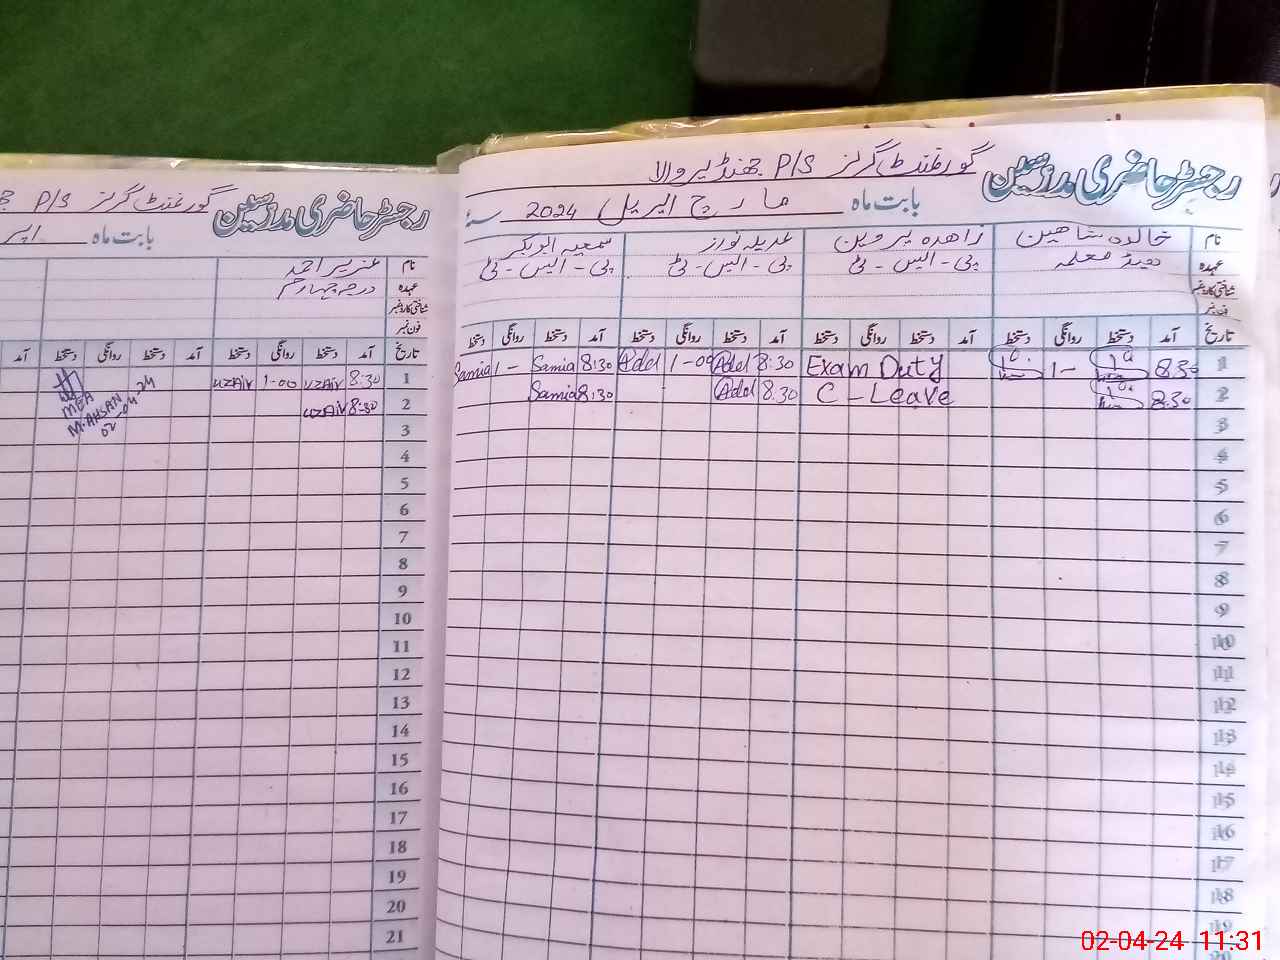 رجسٹر حاضری مدرسین گورنمنٹ گرلز P/S جھنڈیر والا
بابت ماہ مارچ اپریل 2024 سنہ
نام خالدہ شاہین زاہدہ پروین عدیلہ نواز سمعیہ ابوبکر
عہدہ ہیڈ معلمہ پی-ایس-ٹی پی-ایس-ٹی پی-ایس-ٹی
شناختی کارڈ نمبر
فون نمبر
تاریخ آمد دستخط روانگی دستخط آمد دستخط روانگی دستخط آمد دستخط روانگی دستخط آمد دستخط روانگی دستخط
1 8:30 1- Exam Duty 8:30 Adel 1-00 Adel 8:30 Samia 1- Samia
2 8:30 C-Leave 8:30 Adel 8:30 Samia
3
4
5
6
7
8
9
10
11
12
13
14
15
16
17
18
19
20
رجسٹر حاضری مدرسین گورنمنٹ گرلز P/S
بابت ماہ
نام عزیر احمد
عہدہ درجہ چہارم
شناختی کارڈ نمبر
فون نمبر
تاریخ آمد دستخط روانگی دستخط آمد دستخط روانگی دستخط آمد
1 8:30 UZAIR 1-00 UZAIR
2 8:30 UZAIR
MEA
M.AHSAN
02-04-24
3
4
5
6
7
8
9
10
11
12
13
14
15
16
17
18
19
20
21
02-04-24 11:31